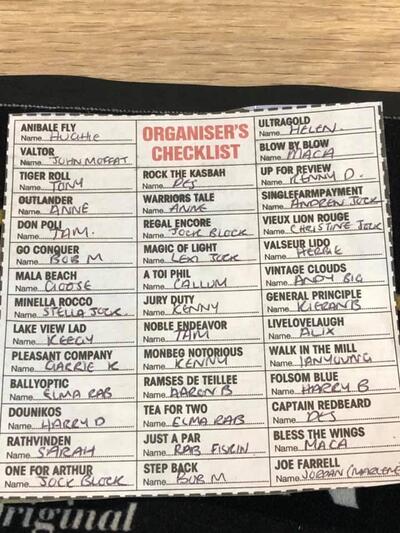 ANIBALE FLY
Name HUGHIE
VALTOR
Name JOHN MOFFAT
TIGER ROLL
Name TONY
OUTLANDER
Name ANNE
DON POLI
Name TAM.
GO CONQUER
Name BOB M
MALA BEACH
Name GOOSE
MINELLA ROCCO
Name STELLA JOCK.
LAKE VIEW LAD
Name KERGY
PLEASANT COMPANY
Name CARRIE K
BALLYOPTIC
Name ELMA RAB
DOUNIKOS
Name HARRY D
RATHVINDEN
Name SARAH
ONE FOR ARTHUR
Name JOCK BLOCK
ORGANISER'S
CHECKLIST
ROCK THE KASBAH
Name DES
WARRIORS TALE
Name ANNE
REGAL ENCORE
Name JOCK BLOCK
MAGIC OF LIGHT
Name LEXI JOCK
A TOI PHIL
Name CALLUM
JURY DUTY
Name KENNY
NOBLE ENDEAVOR
Name TAM
MONBEG NOTORIOUS
Name KENNY
RAMSES DE TEILLEE
Name AARON B
TEA FOR TWO
Name ELMA RAB
JUST A PAR
Name RAB
STEP BACK
Name BOB M
ULTRAGOLD
Name HELEN.
BLOW BY BLOW
Name MACA
UP FOR REVIEW
Name KENNY D.
SINGLEFARMPAYMENT
Name ANDREW JOCK
VIEUX LION ROUGE
Name CHRISTINE JOCK
VALSEUR LIDO
Name HERBIE
VINTAGE CLOUDS
Name ANDY BIG
GENERAL PRINCIPLE
Name
LIVELOVELAUGH
Name ALIX
WALK IN THE MILL
Name IAN YOUNG
FOLSOM BLUE
Name HARRY B
CAPTAIN REDBEARD
Name DES
BLESS THE WINGS
Name MACA
JOE FARRELL
Name JORDAN (MARLENE
riginal